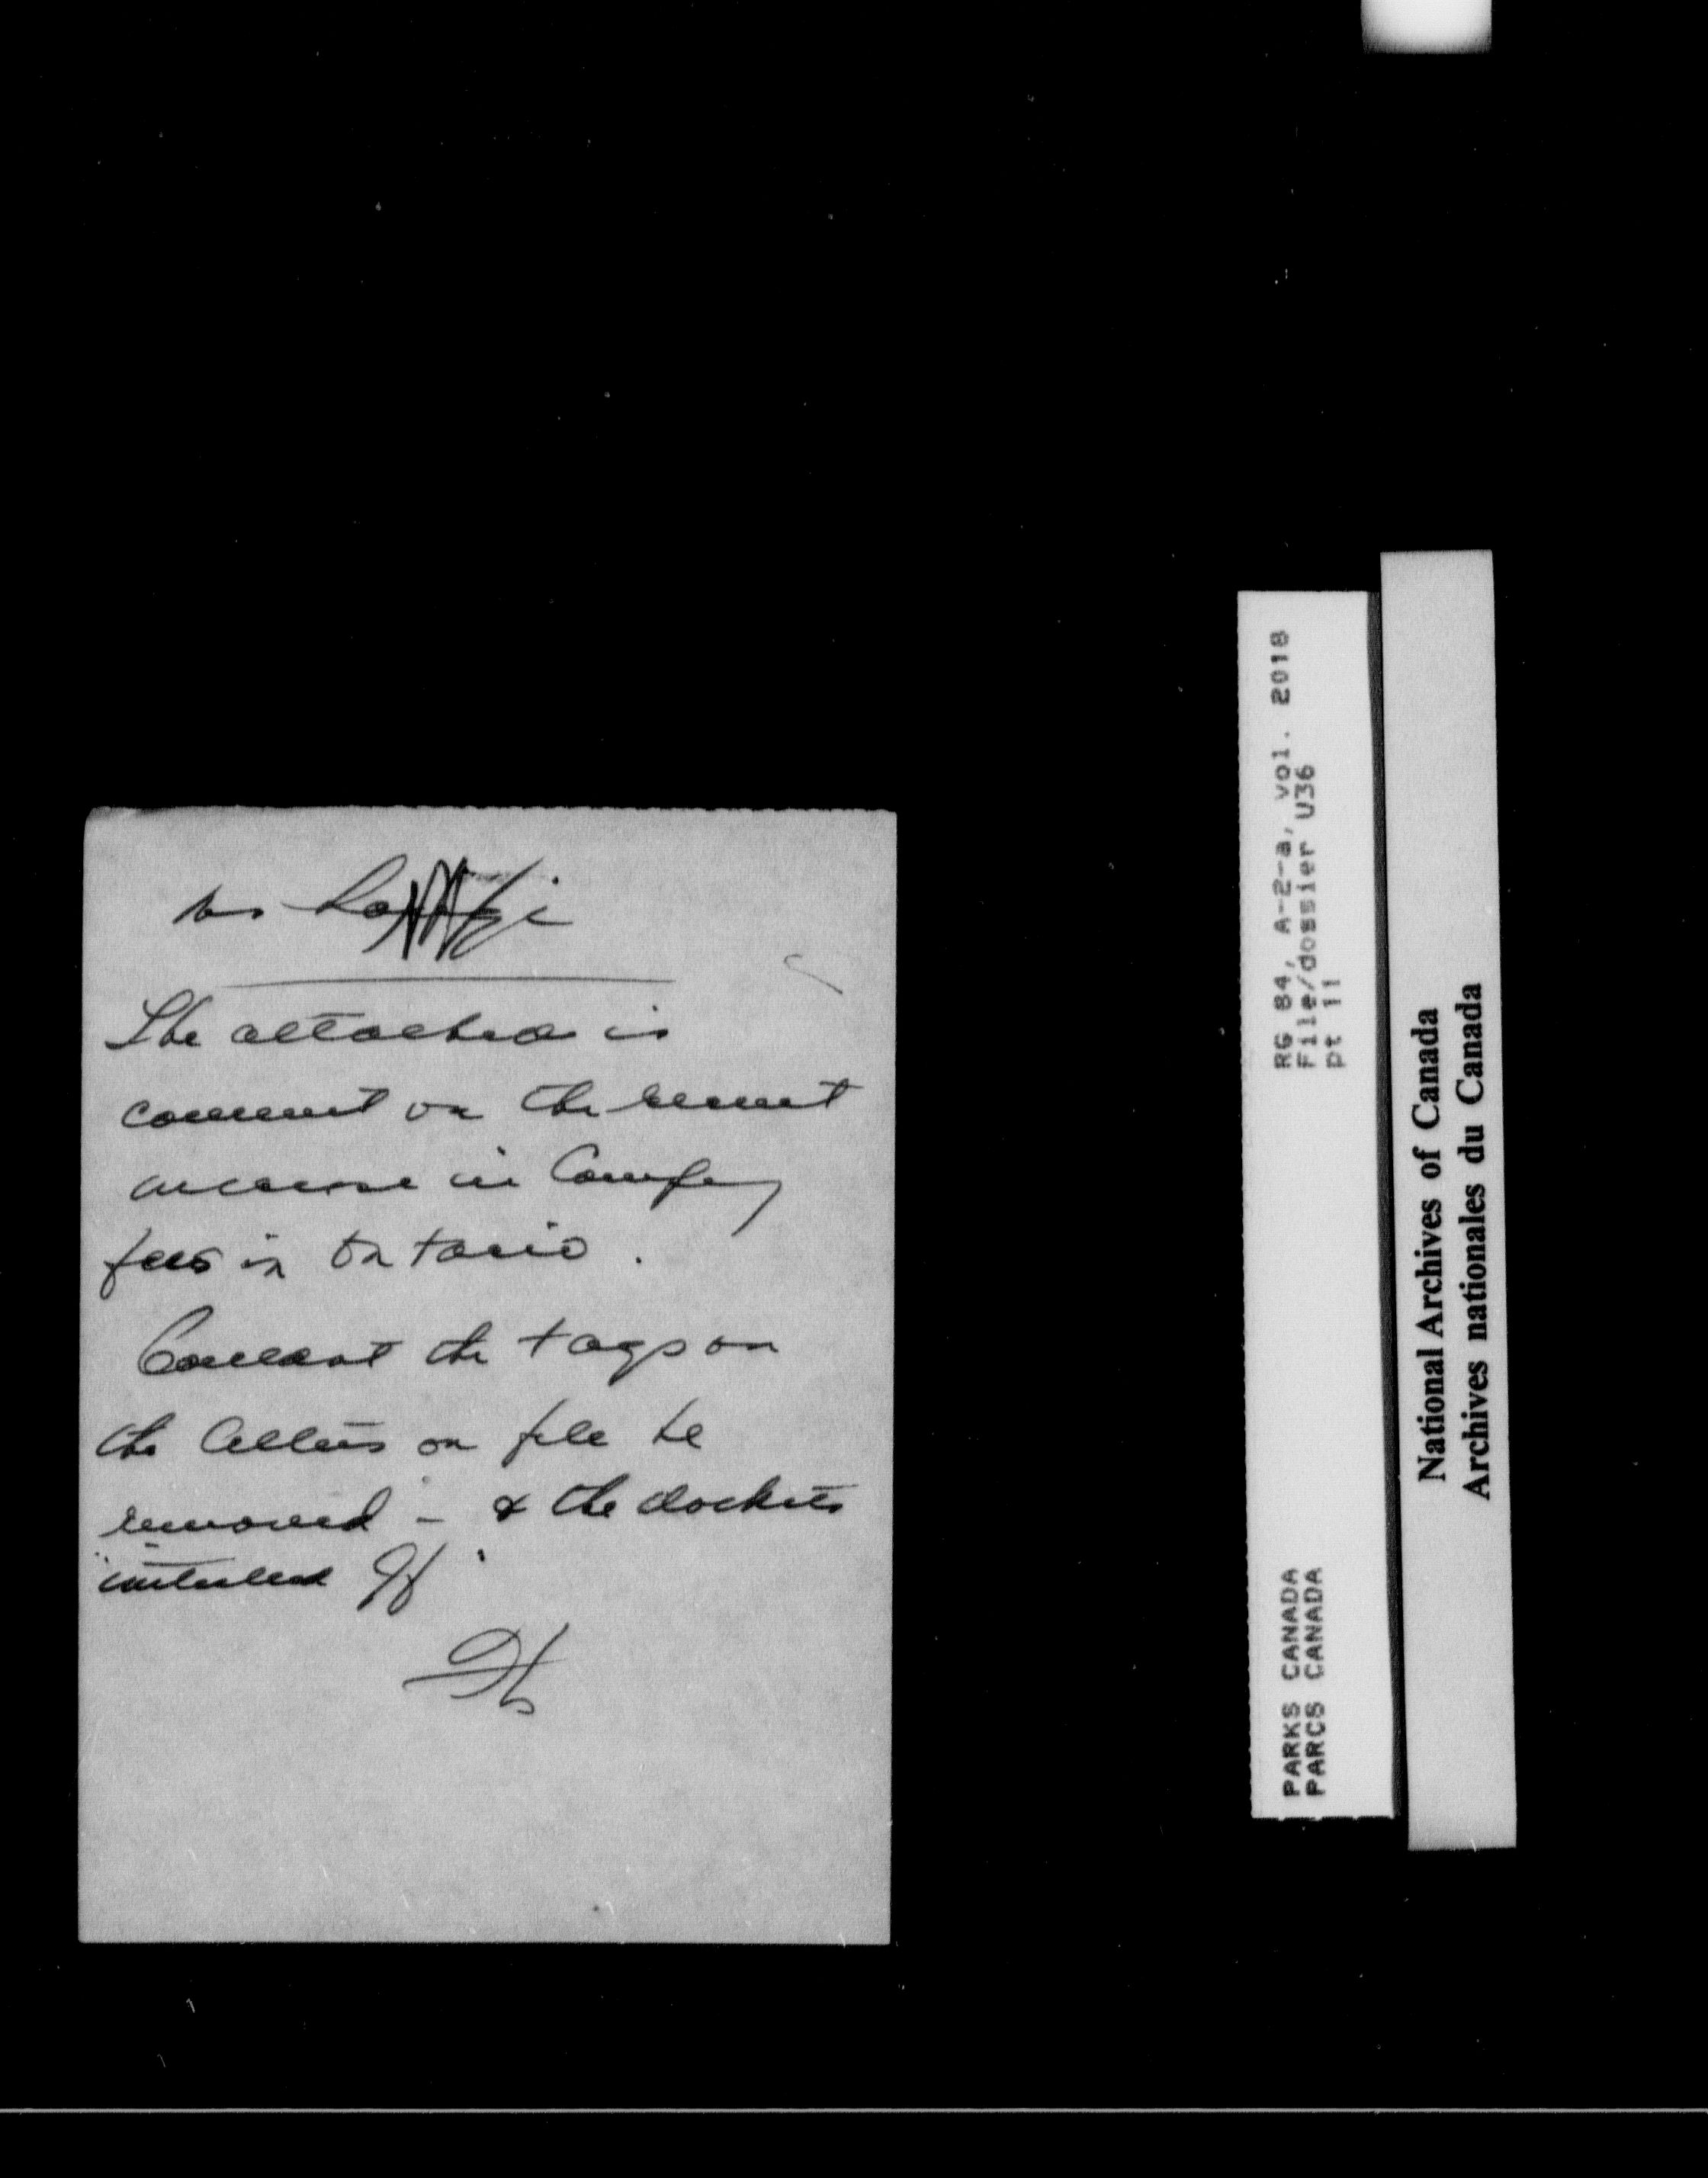 The attached is
comment on the recent
increase in Camping
fees in Ontario.
the letters on file be
removed - & the dockets
initialled
RG 84, A-2-a, vol. 2018
File/dossier U36
pt 11
PARKS CANADA
PARCS CANADA
National Archives of Canada
Archives nationales du Canada